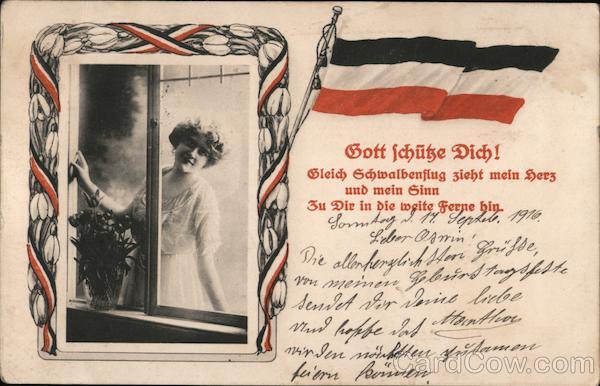 Gott schütze Dich!
Gleich Schwalbenflug zieht mein Herz
und mein Sinn
Zu Dir in die weite Ferne hin.
Sonntag d. 17. Septbr. 1916.
Lieber Oswin!
Die allerherzlichsten Grüsse,
von meinen Geburtstagsfeste
sendet dir deine liebe
Martha
und hoffe das
wir den nächsten zusamen
feiern können
CardCow.com